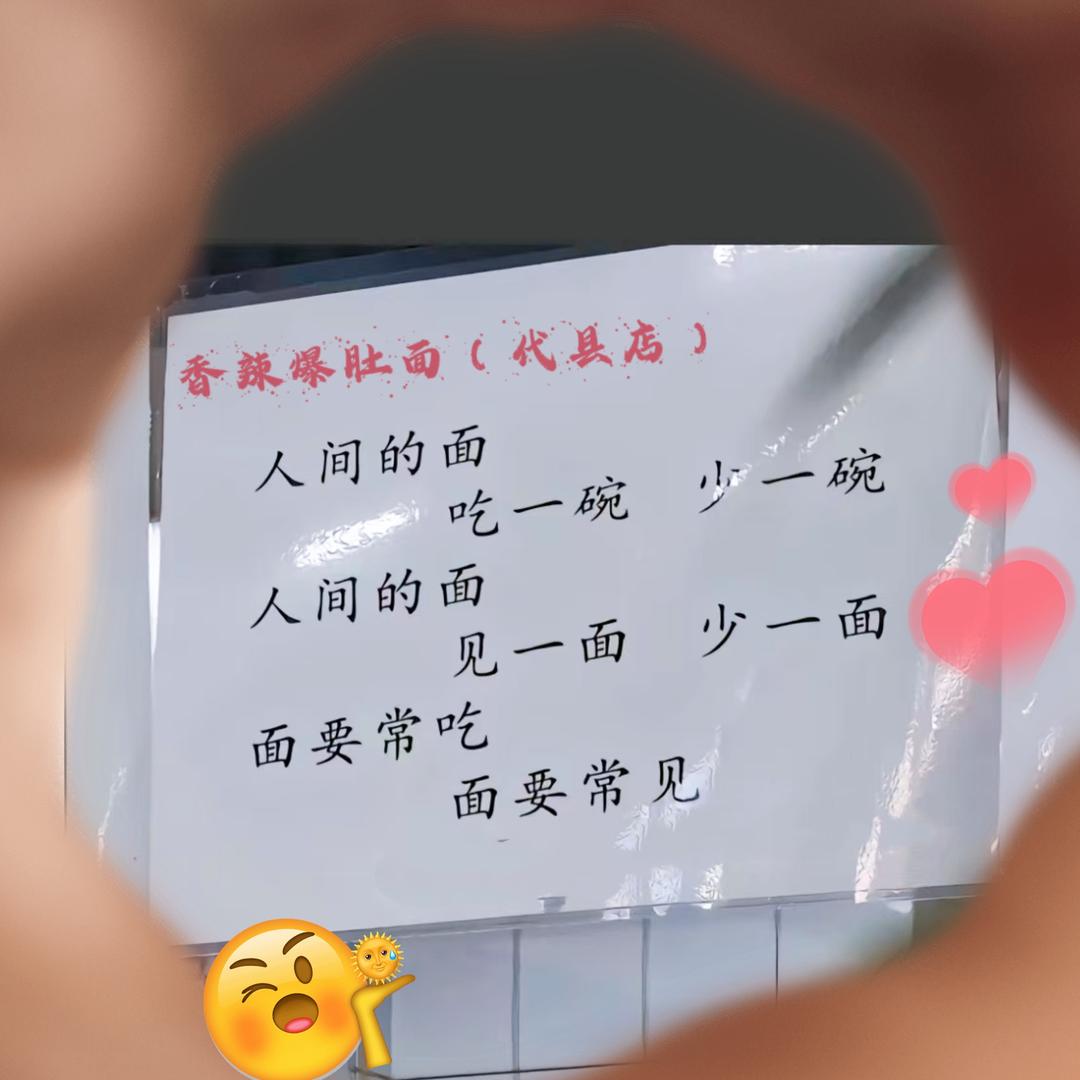 香辣爆肚面（代县店）
人间的面
吃一碗 少一碗
人间的面
见一面 少一面
面要常吃
面要常见